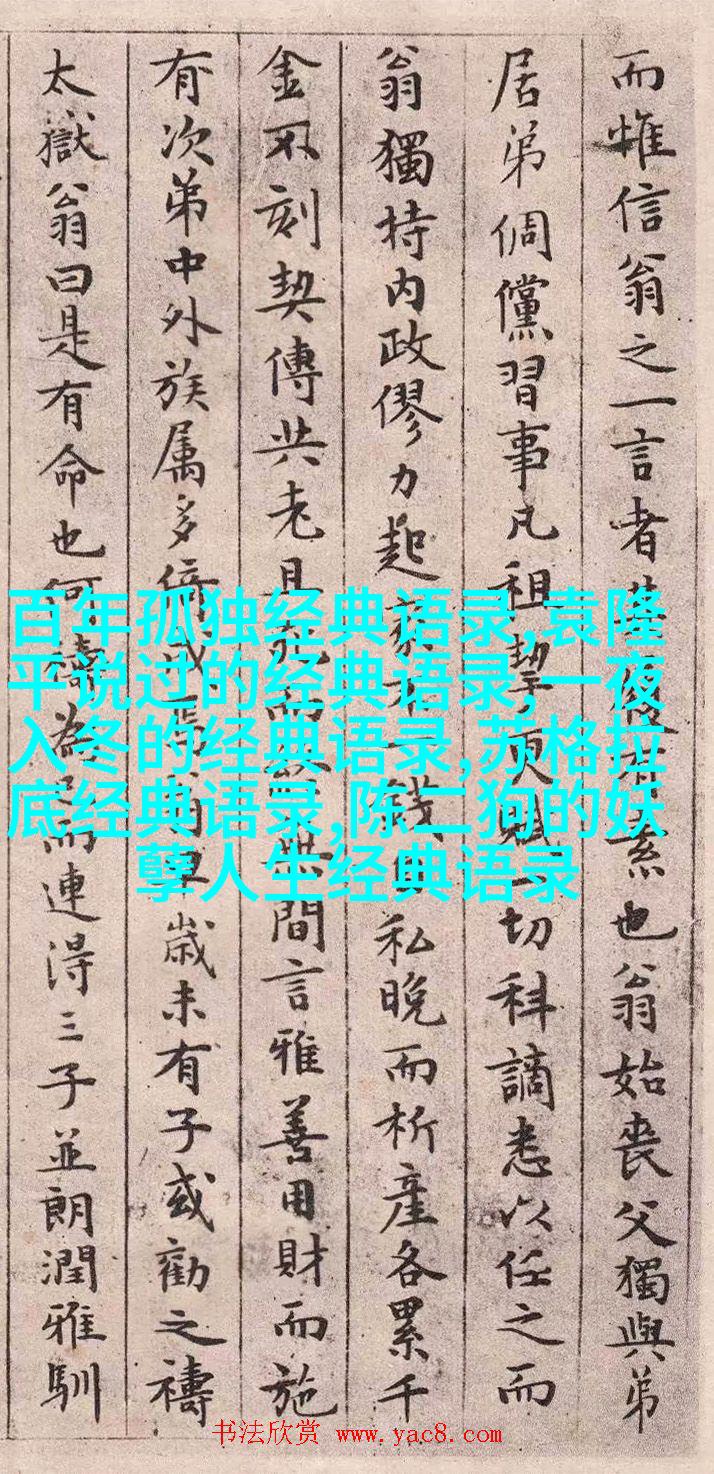 而惟信翁之一言者素也翁始喪父獨與弟
居弟倜儻習事凡租挈更賦一切科謫悉以任之而
翁獨持内政僇力起家錢私晚而析產各累千
金不刻契傅共老且死而間言雅善用財而施
有次弟中外族属多倚歲未有子或勸之禱
太嶽翁曰是有命也何禱為已而連得三子並朗潤雅馴
百年孤独经典语录,袁隆
平说过的经典语录,一夜
入冬的经典语录,苏格拉
底经典语录,陈二狗的妖
孽人生经典语录
书法欣赏 www.yac8.com